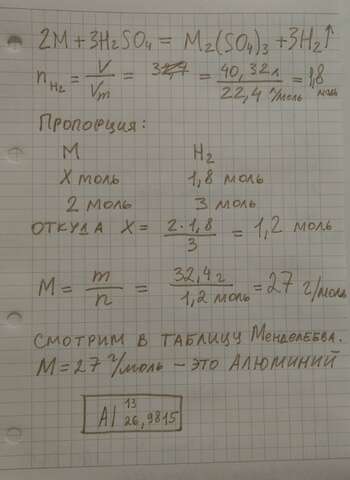 2M + 3H₂SO₄ = M₂(SO₄)₃ + 3H₂↑
n H₂ = V/Vm = = 40,32 л / 22,4 л/моль = 1,8 моль
Пропорция:
M H₂
X моль 1,8 моль
2 моль 3 моль
ОТКУДА X = 2·1,8 / 3 = 1,2 моль
M = m/n = 32,4 г / 1,2 моль = 27 г/моль
СМОТРИМ В ТАБЛИЦУ Менделеева.
M = 27 г/моль – ЭТО АЛЮМИНИЙ
Al 13 26,9815